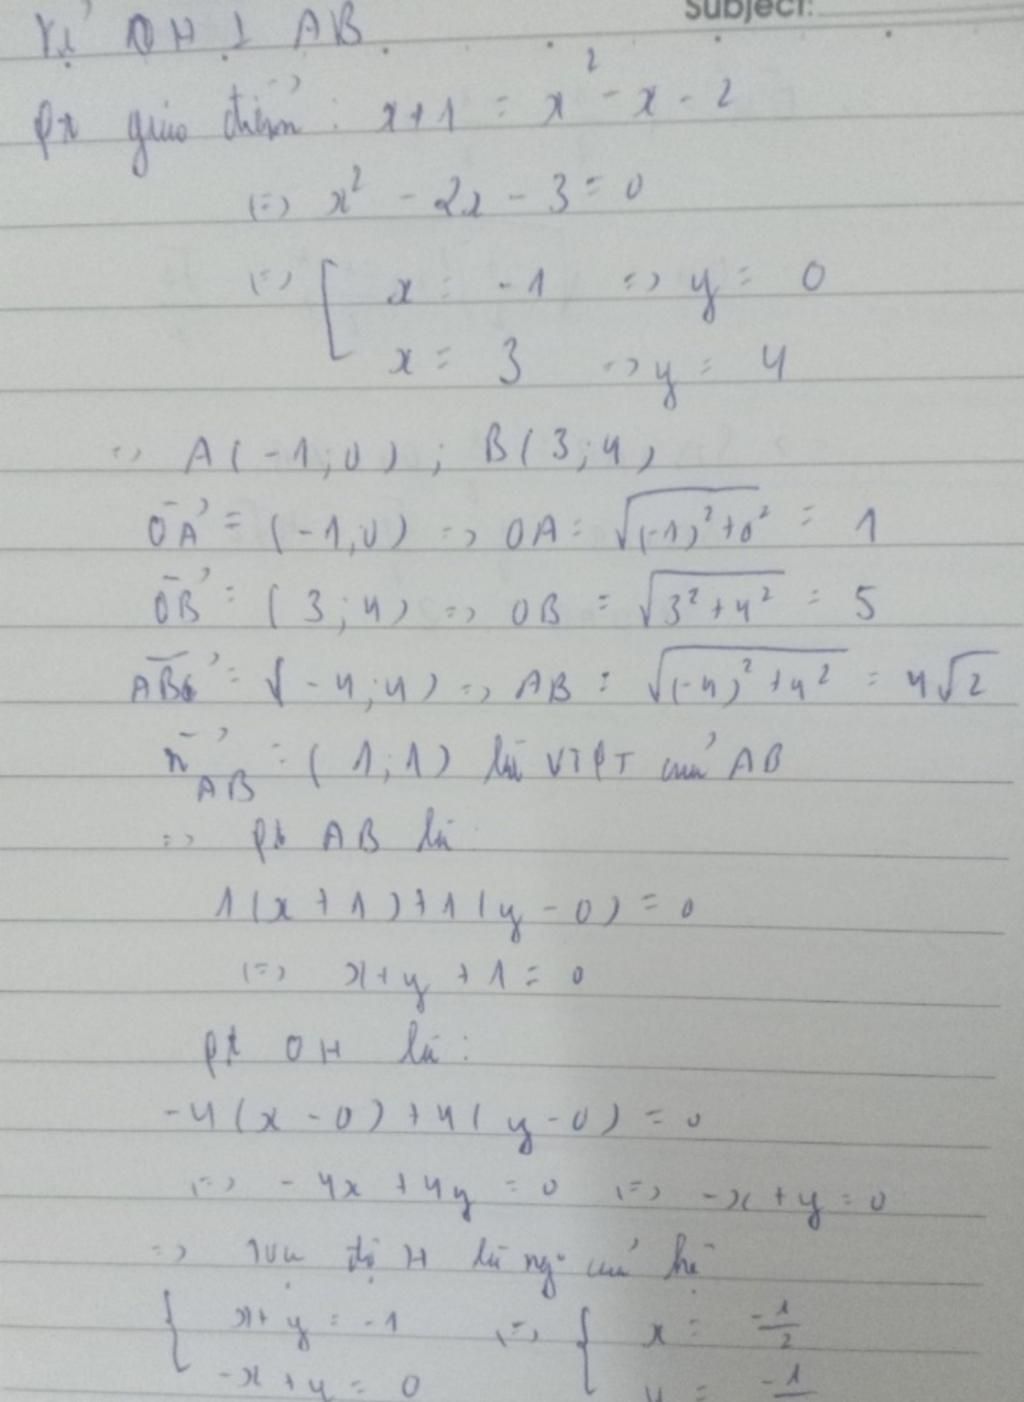 Subject:
Kẻ OH ⊥ AB
Pt giao điểm: x+1 = x² - x - 2
(=) x² - 2x - 3 = 0
(=) [ x = -1 => y = 0
x = 3 => y = 4
=> A(-1;0); B(3;4)
OA→ = (-1;0) => OA = √((-1)²+0²) = 1
OB→ = (3;4) => OB = √(3²+4²) = 5
AB→ = (-4;4) => AB = √((-4)²+4²) = 4√2
n→AB = (1;1) là VTPT của AB
=> pt AB là:
1(x+1)+1(y-0) = 0
(=) x+y+1 = 0
pt OH là:
-4(x-0)+4(y-0) = 0
(=) -4x+4y = 0 (=) -x+y = 0
=> toạ độ H là ng° của hệ
{ x+y = -1 (=) { x = -1/2
-x+y = 0 y = -1